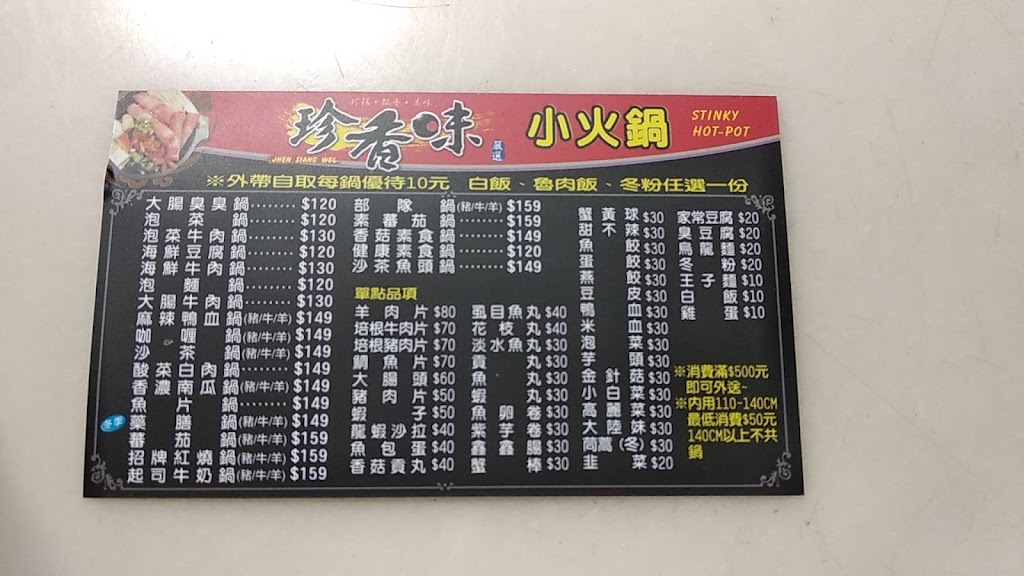 珍饈・飄香・美味
珍香味
JHEN SIANG WEI
嚴選
小火鍋
STINKY
HOT-POT
※外帶自取每鍋優待10元 白飯、魯肉飯、冬粉任選一份
大腸臭臭鍋········$120
泡菜鍋········$120
泡菜牛肉鍋········$130
海鮮豆腐鍋········$120
海鮮牛肉鍋········$130
泡麵鍋········$120
大腸牛肉鍋········$130
麻辣鴨血鍋(豬/牛/羊)$149
咖喱鍋(豬/牛/羊)$149
沙茶鍋(豬/牛/羊)$149
酸菜白肉鍋········$149
香濃南瓜鍋(豬/牛/羊)$149
魚片鍋········$149
冬季 藥膳鍋(豬/牛/羊)$149
蕃茄鍋(豬/牛/羊)$159
招牌紅燒鍋(豬/牛/羊)$159
起司牛奶鍋(豬/牛/羊)$159
部隊鍋(豬/牛/羊)$159
素蕃茄鍋········$159
香菇素食鍋········$149
健康素食鍋········$120
沙茶魚頭鍋········$149
單點品項
羊肉片$80
培根牛肉片$70
培根豬肉片$70
鯛魚片$70
大腸頭$60
豬肉片$50
蝦子$50
龍蝦沙拉$40
魚包蛋$40
香菇貢丸$40
虱目魚丸$40
花枝丸$40
淡水魚丸$30
貢丸$30
魚丸$30
蝦丸$30
魚卵卷$30
紫芋卷$30
鑫鑫腸$30
蟹棒$30
蟹黃球$30
甜不辣$30
魚餃$30
蛋餃$30
燕餃$30
豆皮$30
鴨血$30
米血$30
泡菜$30
芋頭$30
金針菇$30
小白菜$30
高麗菜$30
大陸妹$30
茼萵(冬)$30
韭菜$20
家常豆腐$20
臭豆腐$20
烏龍麵$20
冬粉$20
王子麵$10
白飯$10
雞蛋$10
※消費滿$500元
即可外送~
※內用110~140CM
最低消費$50元
140CM以上不共
鍋